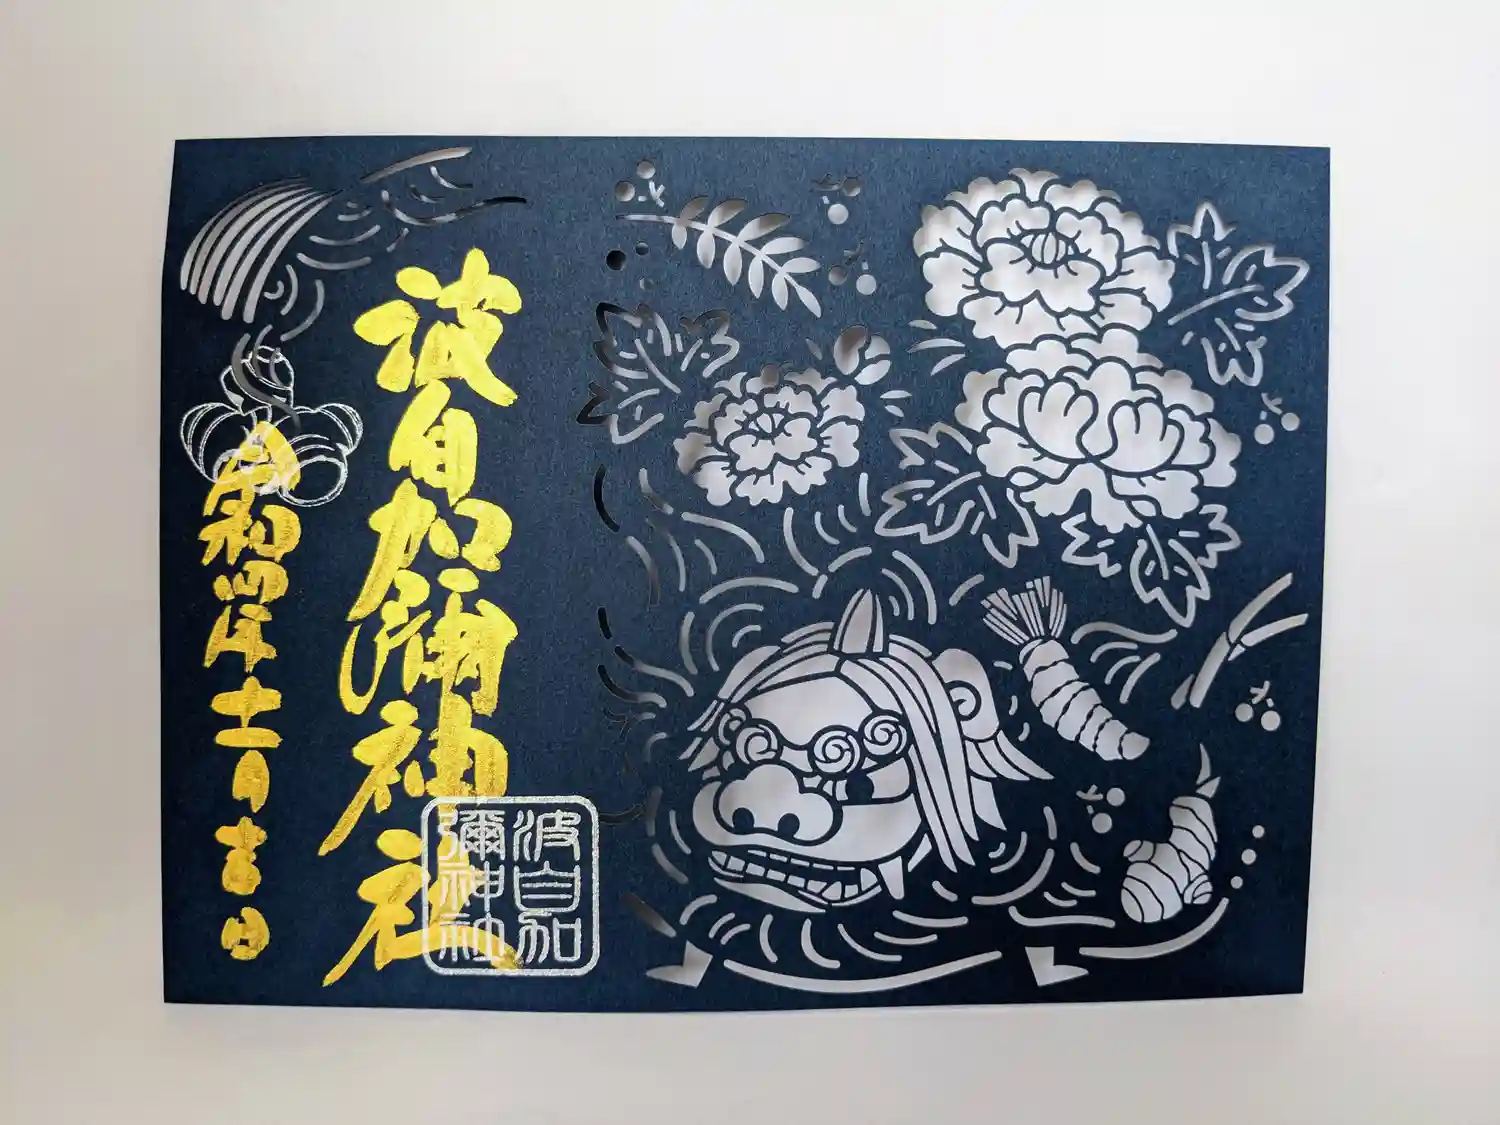 波自加彌神社
令和四年十一月吉日
波自加
彌神社